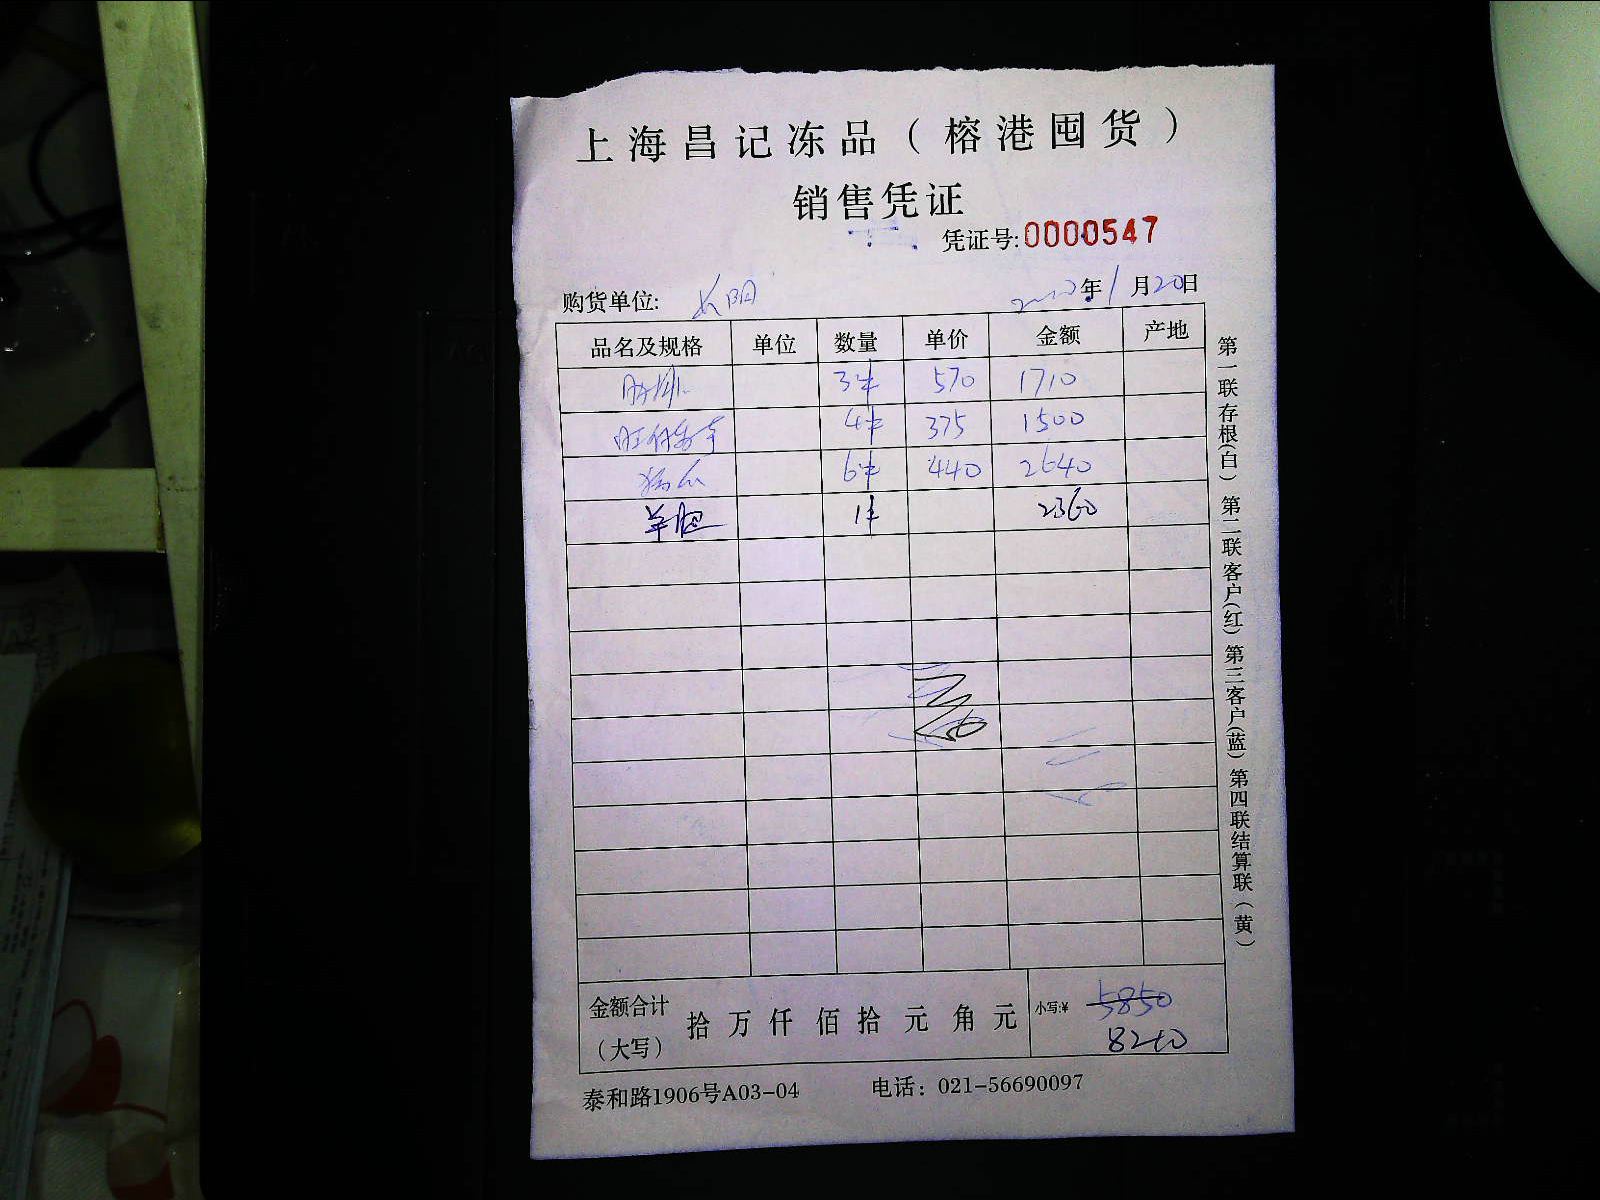 上海昌记冻品（榕港囤货）
销售凭证
凭证号:0000547
购货单位: 长阳 年1月20日
品名及规格 单位 数量 单价 金额 产地
3件 570 1710
4件 375 1500
6件 440 2640
羊 1件 2360
金额合计（大写） 拾万仟佰拾元角元 小写:¥ 5850
8210
泰和路1906号A03-04 电话：021-56690097
第一联存根(白) 第二联客户(红) 第三客户(蓝) 第四联结算联(黄)